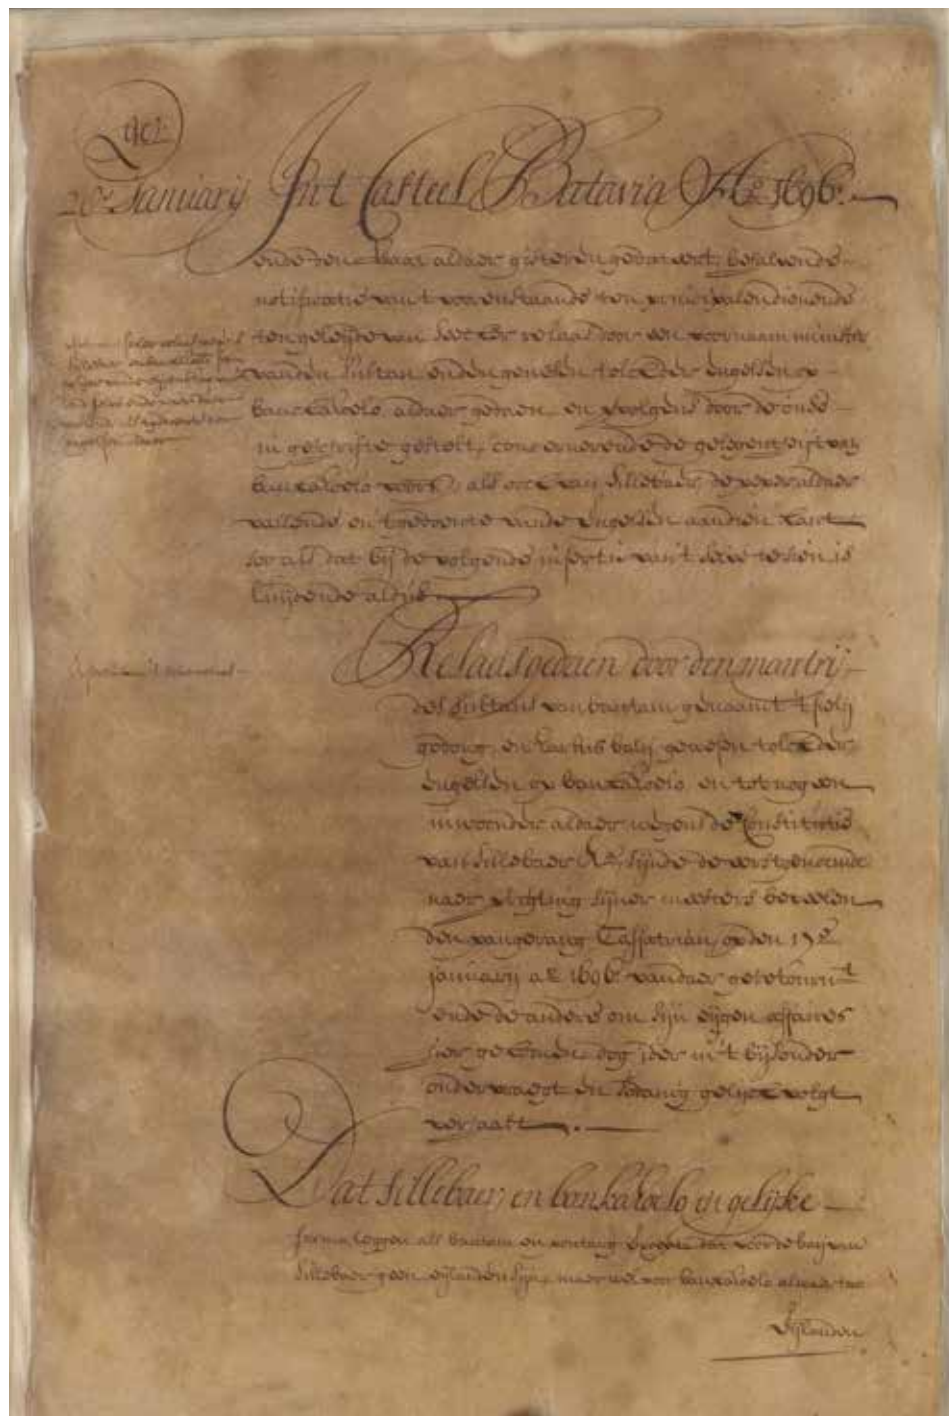 26.e Januarij Int Casteel Batavia A.o 1696.
notificatie van 't voorenstaande ten principalen dienende
ten geleijde van seecker relaas door een voornaam minister
vanden Sultan, ende den gewesen tolck der engelsen op
bancahoelo, aldaer gedaen, en volgens door de onse
in geschrifte gestelt, concernerende de gelegentheijt van
bancahoelo voors:, als oock van Sillebaer, de peper aldaer
vallende en 't gedoente vande Engelsen aan dien kant
soo als dat bij de volgende insertie van 't selve te sien is
luijdende aldus
Relaas gedaen door den mantrij
des Sultans van bantam genaamt
gedong, en kartus balij, gewesen tolck der
engelsen op bancahoelo, en tot nog een
inwoonder aldaer, wegens de Constitutie
van Sillebaer &.a, sijnde de eerstgenoemde
naer rigting sijner meesters bevelen
den pangerang Tassatrian, op den 17.e
januarij a.o 1696. van daer geretourn.t
ende de andere om sijn eijgen affaires
hier gekomen, dog ider in 't bijsonder
ondervraegt en sodanig gelijck volgt
verhaalt.
Dat Sillebaer, en bankahoelo in gelijke
forma leggen als bantam en pontang dat voor de baij van
Sillebaer geen eijlanden sijn, maer wel voor bancahoelo, alwaer twe
Eijlanden